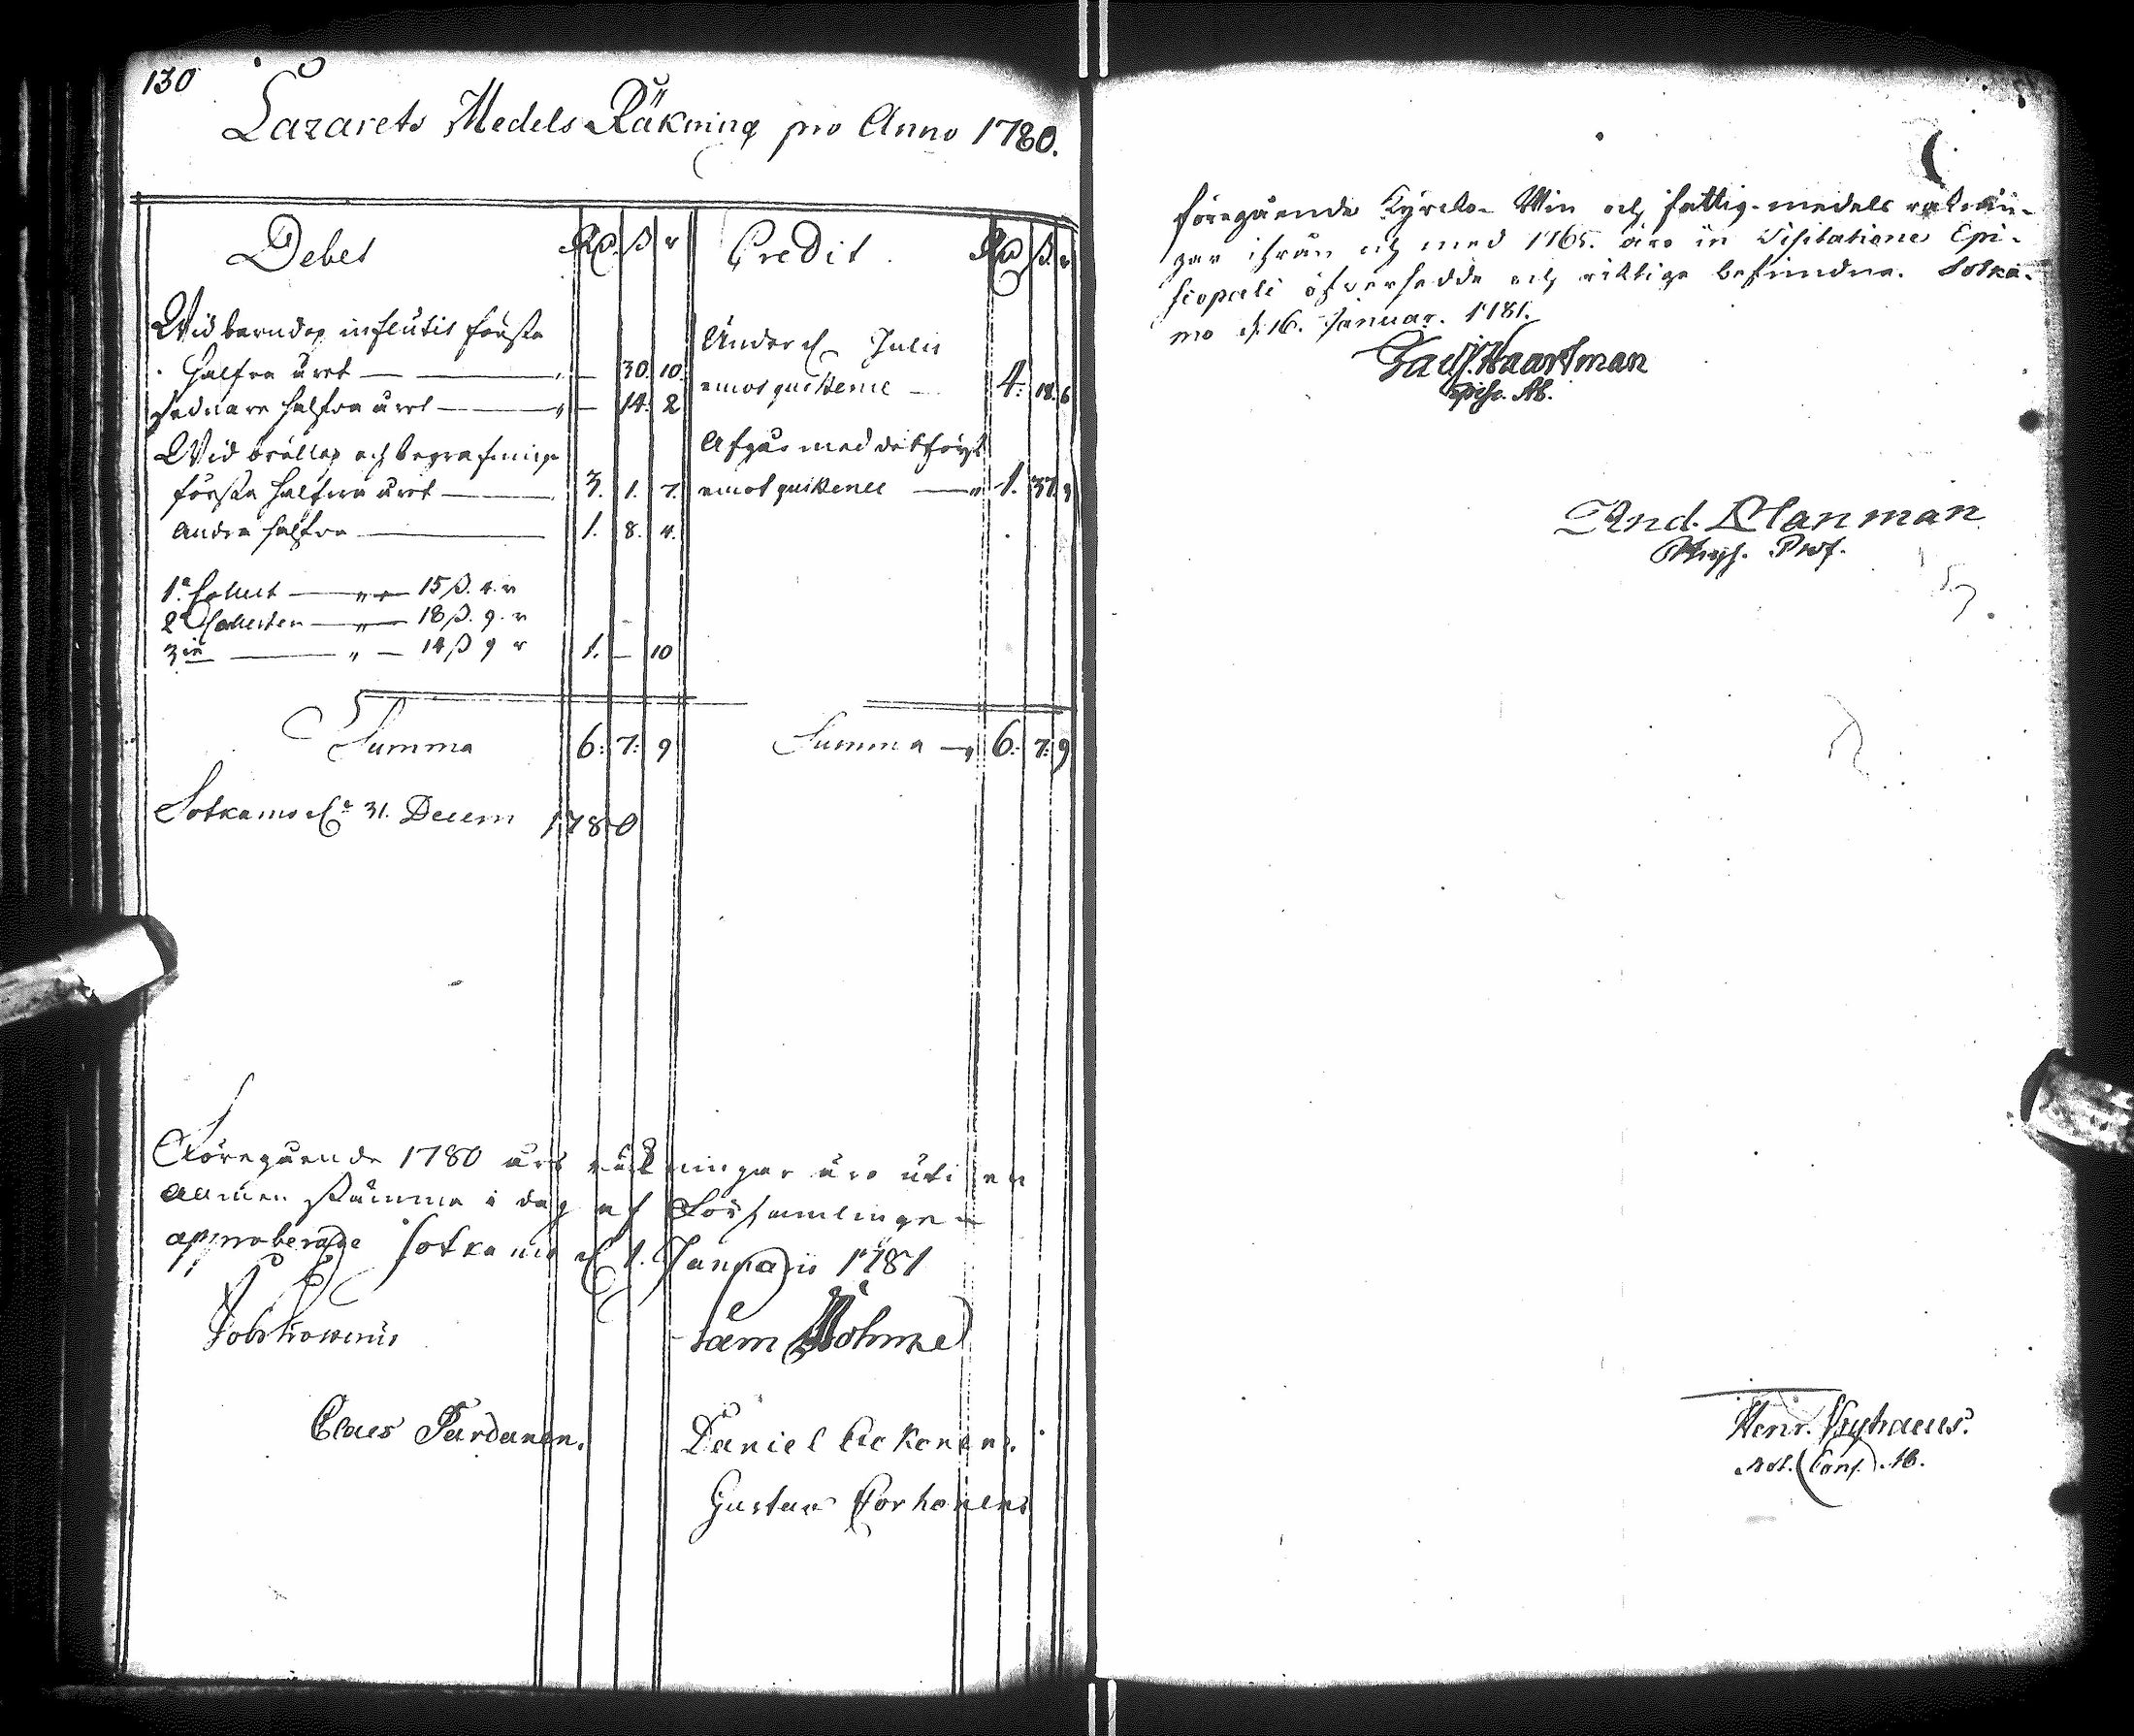 130
Lazarets Medels Räkning pro Anno 1780.
Debet Rd. ß r
Wid barndop influtit första
halfva året — " — 30. 10.
sednare halfva året — " — 14. 2
Wid bröllop och begrafninge
första halfva året — 3. 1. 7.
andra halfva — 1. 8. 4.
1a Collect — " — 15 ß. 4. r
2a Collecten — " — 18 ß. 9. r
3ie — " — 14 ß 9 r 1. — 10
Summa 6: 7: 9
Credit Rd ß. r
Under d. Julii
emot quittence — 4: 18. 6
Afgår med det förgl
emot quittence — " 1. 37. 3
Summa — " 6: 7: 9
Sotkamo d. 31. Decem 1780
Föregående 1780 års räkningar äro uti en
allmän stämma i dag af Församlingen
approberade Sotkamo d. 1. Januarii 1781
Claes Pardanen.
Daniel Kokonen.
Gustav Korhonen
föregående Kyrcko- Win och fattig-medels räknin-
gar ifrån och med 1765. äro in Visitatione Epi-
scopali öfversedde och riktige befundne. Sotka-
mo d. 16. Januar. 1781.
Jac. Haartman
Episc. Ab.
And. Planman
Phys. Prof.
Henr.
Not. Cons. Ab.